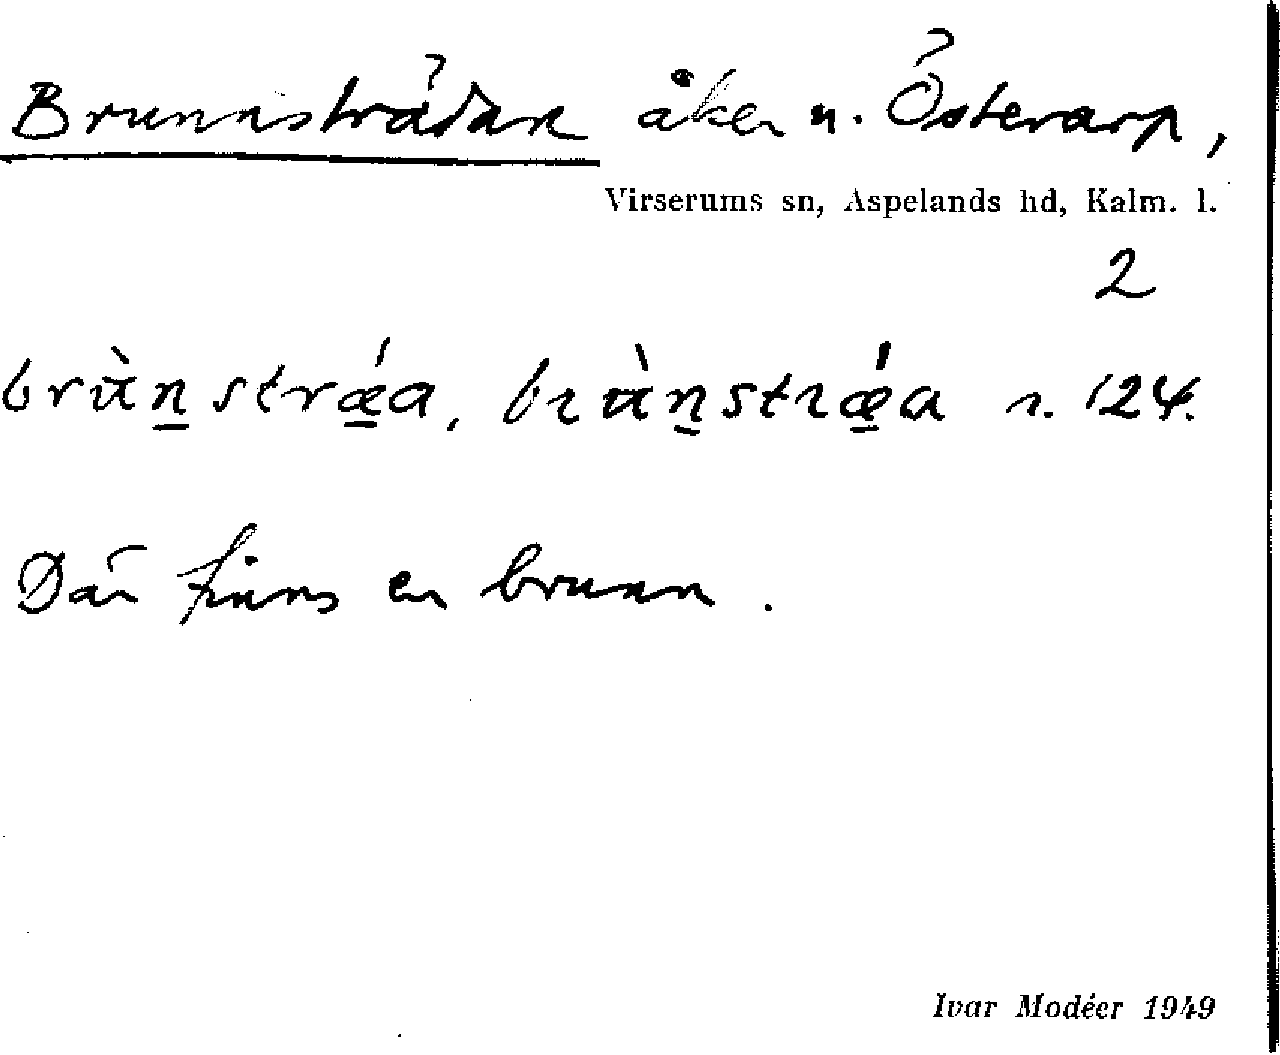 Brunnsträdan åker n. Österarp,
Virserums sn, Aspelands hd, Kalm. l.
2
brùn̲strǽ̲a, brùn̲strǽ̲a r. 124.
Där finns en brunn.
Ivar Modéer 1949